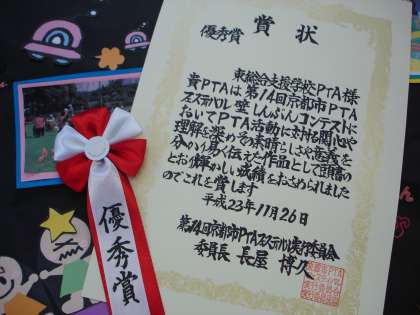 賞状
優秀賞
東総合支援学校PTA様
貴PTAは第14回京都市PTA
フェスティバル壁しんぶんコンテストに
おいてPTA活動に対する関心や
理解を深めその素晴らしさや意義を
分かり易く伝えた作品として頭書の
とおり輝かしい成績をおさめられました
のでこれを賞します
平成23年11月26日
第14回京都市PTAフェスティバル実行委員会
委員長 長屋 博久
優秀賞